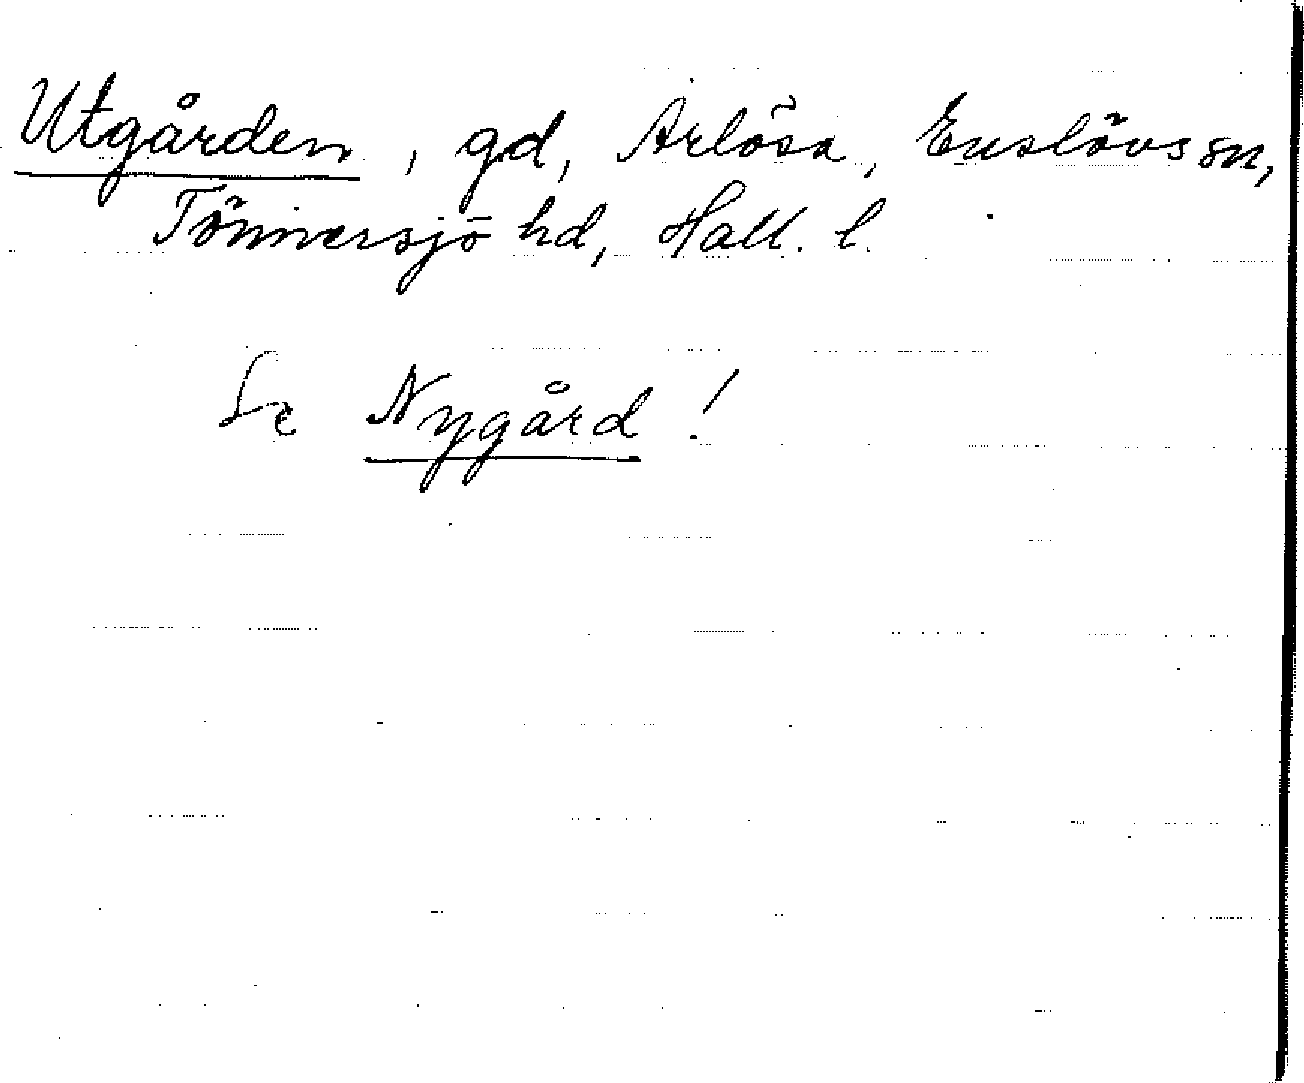 Utgården, gd, Årlösa, Enslövs sn,
Tönnersjö hd, Hall. l.
Se Nygård!